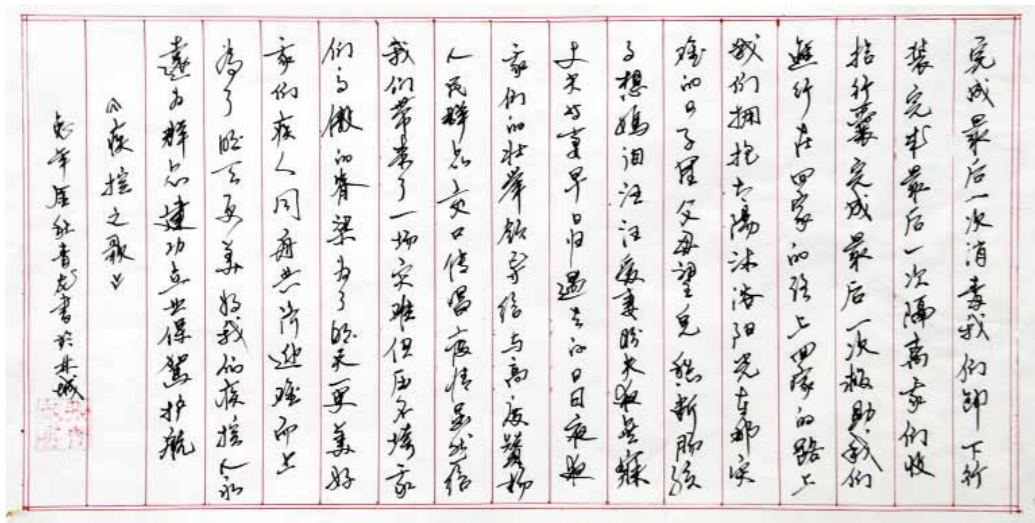 完成最后一次消毒我们卸下行
装完成最后一次隔离我们收
拾行囊完成最后一次援助我们
踏行在回家的路上回家的路上
我们拥抱太阳沐浴阳光在那灾
难的日子里父母望儿愁断肠孩
子想妈泪汪汪爱妻盼夫夜无寐
丈夫与妻早日归过去的日日夜夜
我们的壮举领导给与高度赞扬
人民群众交口传唱疫情虽然给
我们带来了一场灾难但压不垮我
们高傲的脊梁为了明天更美好
我们疾人同舟共济迎难而上
为了明天更美好我们疾控人永
远为群众建功立业保驾护航
《疾控之歌》
书於